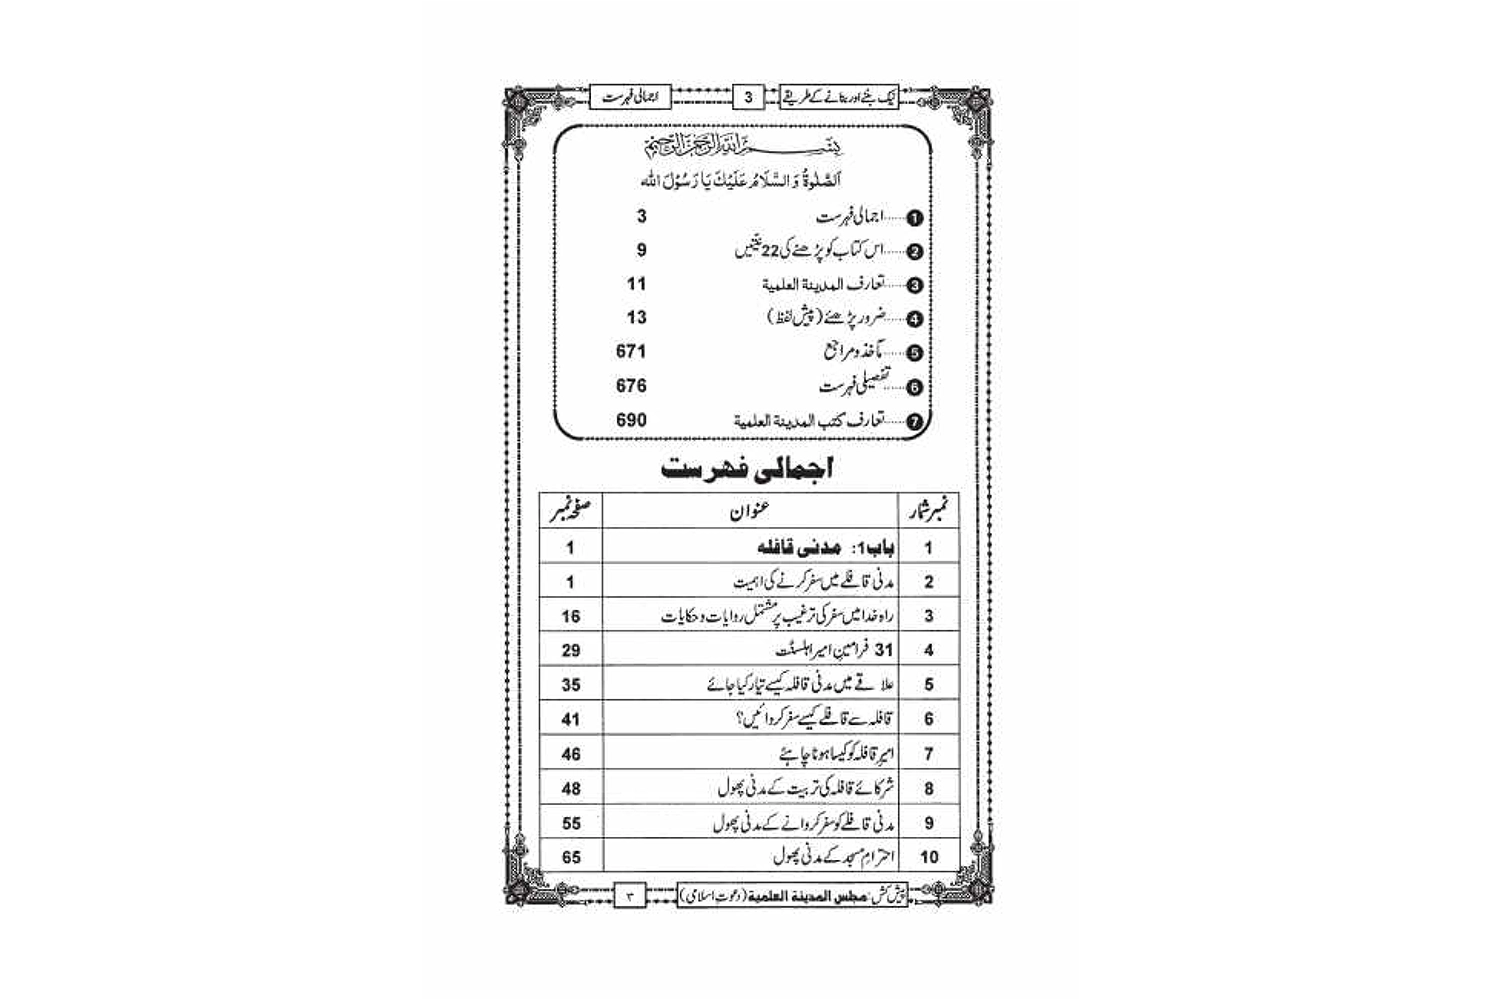 نیک بننے اور بنانے کے طریقے 3 اجمالی فہرست
بِسْمِ اللهِ الرَّحْمٰنِ الرَّحِيْمِ
اَلصَّلٰوةُ وَالسَّلَامُ عَلَيْكَ يَا رَسُوْلَ الله
1 ......اجمالی فہرست 3
2 ......اس کتاب کو پڑھنے کی 22 نیّتیں 9
3 ......تعارف المدینۃ العلمیۃ 11
4 ......ضرور پڑھئے (پیش لفظ) 13
5 ......مآخذ و مراجع 671
6 ......تفصیلی فہرست 676
7 ......تعارف کتب المدینۃ العلمیۃ 690
اجمالی فہرست
نمبر شمار عنوان صفحہ نمبر
1 باب 1: مدنی قافلہ 1
2 مدنی قافلے میں سفر کرنے کی اہمیت 1
3 راہ خدا میں سفر کی ترغیب پر مشتمل روایات و حکایات 16
4 31 فرامینِ امیر اہلسنّت 29
5 علاقے میں مدنی قافلہ کیسے تیار کیا جائے 35
6 قافلہ سے قافلے کیسے سفر کروائیں؟ 41
7 امیرِ قافلہ کو کیسا ہونا چاہئے 46
8 شرکائے قافلہ کی تربیت کے مدنی پھول 48
9 مدنی قافلے کو سفر کروانے کے مدنی پھول 55
10 احترامِ مسجد کے مدنی پھول 65
پیش کش: مجلس المدینۃ العلمیۃ (دعوتِ اسلامی) ۳